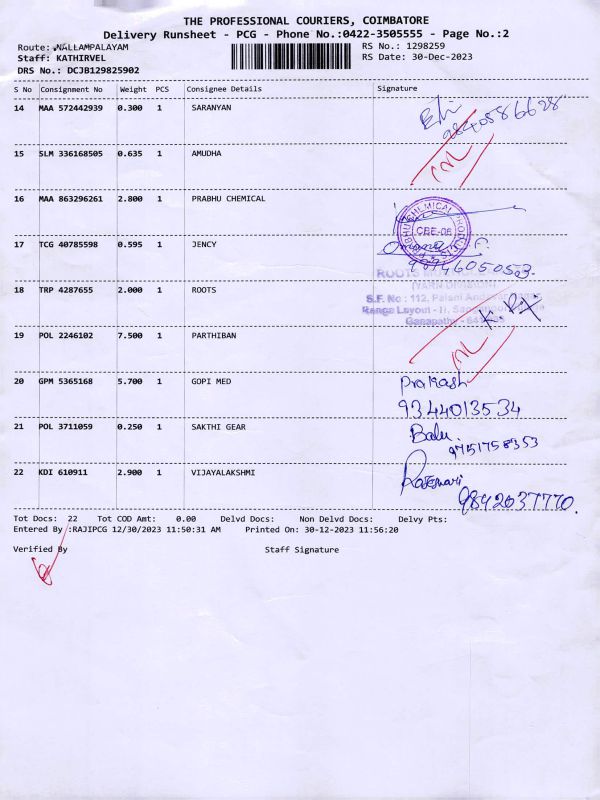 THE PROFESSIONAL COURIERS, COIMBATORE
Delivery Runsheet - PCG - Phone No.:0422-3505555 - Page No.:2
Route: NALLAMPALAYAM
RS No.: 1298259
Staff: KATHIRVEL
RS Date: 30-Dec-2023
DRS No.: DCJB129825902
S No Consignment No Weight PCS Consignee Details Signature
14 MAA 572442939 0.300 1 SARANYAN
9840586628
15 SLM 336168505 0.635 1 AMUDHA
16 MAA 863296261 2.800 1 PRABHU CHEMICAL
PRABHU CHEMICAL PRODUCTS
CBE-06
17 TCG 40785598 0.595 1 JENCY
90946050503.
18 TRP 4287655 2.000 1 ROOTS
ROOTS
S.F. No : 112, Palani
Ranga Layout - II,
Ganapathy -
19 POL 2246102 7.500 1 PARTHIBAN
20 GPM 5365168 5.700 1 GOPI MED Prakash
9344013534
21 POL 3711059 0.250 1 SAKTHI GEAR Balu.
9751758353
22 KDI 610911 2.900 1 VIJAYALAKSHMI
9842037770.
Tot Docs: 22 Tot COD Amt: 0.00 Delvd Docs: Non Delvd Docs: Delvy Pts:
Entered By :RAJIPCG 12/30/2023 11:50:31 AM Printed On: 30-12-2023 11:56:20
Verified By Staff Signature